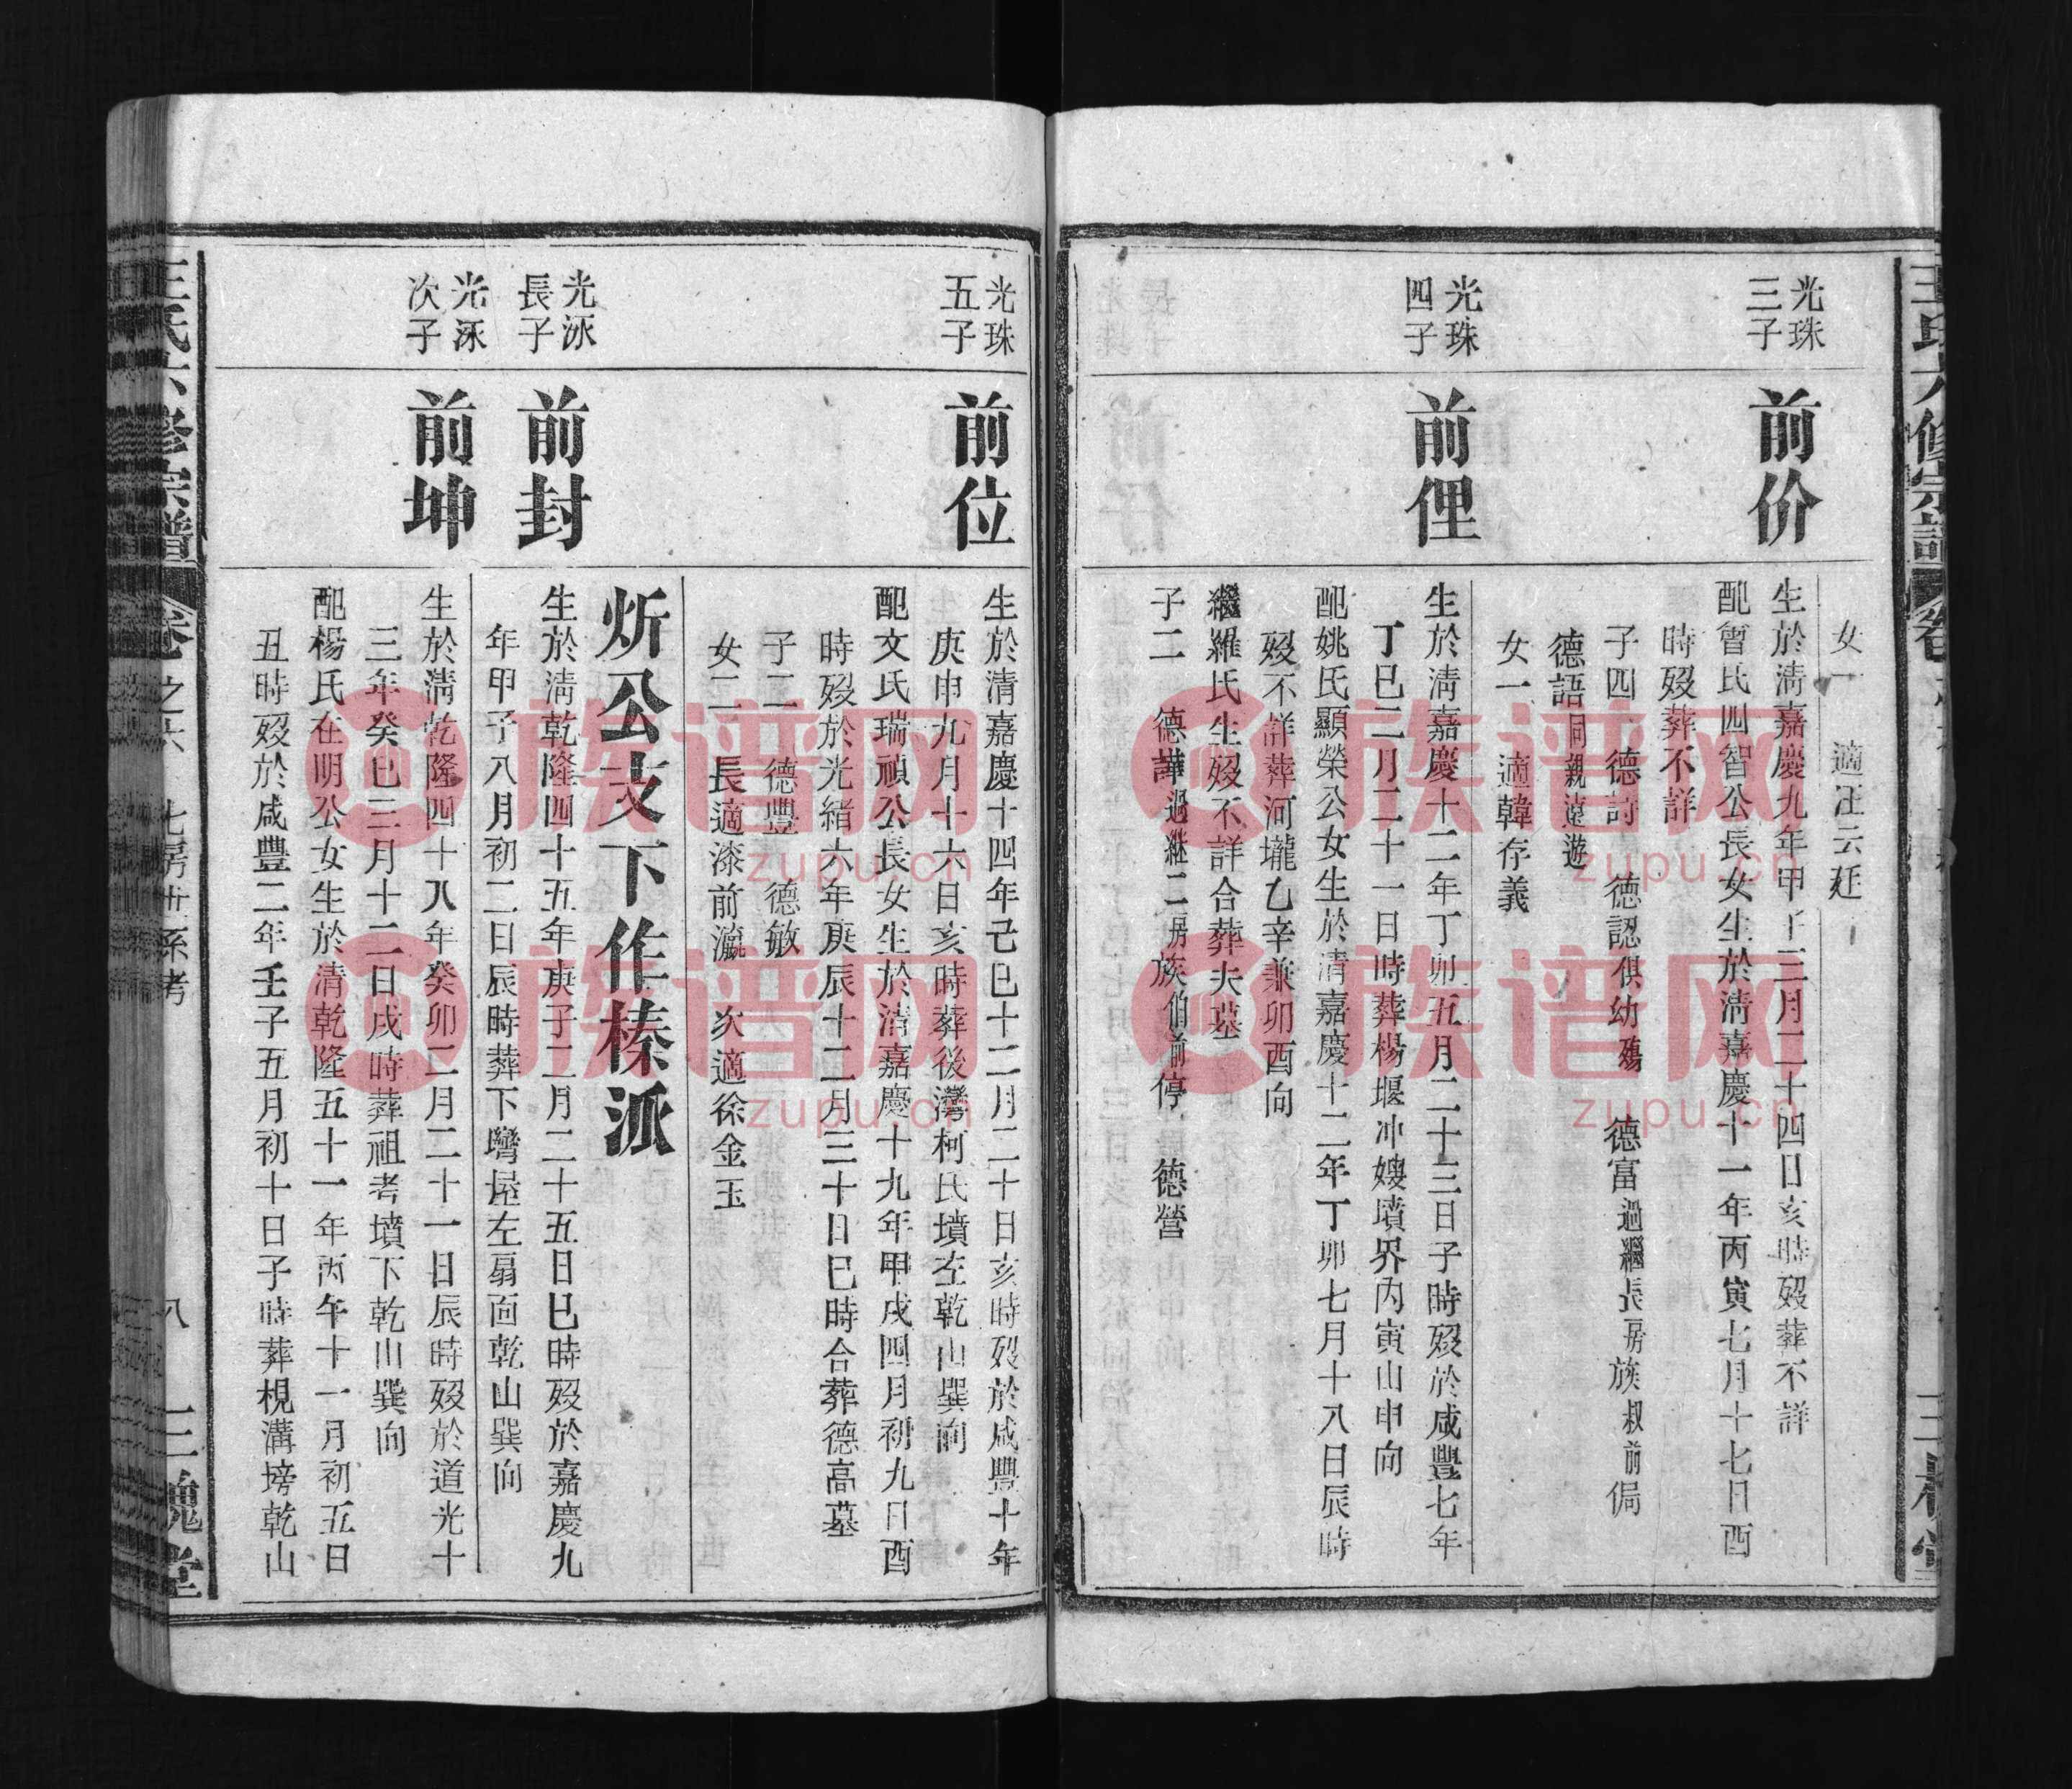 女一 適汪云廷
光珠三子
前价
生於清嘉慶九年甲子三月二十四日亥時歿葬不詳
配曾氏四智公長女生於清嘉慶十一年丙寅七月十七日酉
時歿葬不詳
子四 德詩 德認俱幼殤 德富過繼長房族叔前侷
德語同親遠遊
女一 適韓存義
光珠四子
前俚
生於清嘉慶十二年丁卯五月二十三日子時歿於咸豐七年
丁巳二月二十一日時葬楊堰冲嫂墳界丙寅山申向
配姚氏顯榮公女生於清嘉慶十二年丁卯七月十八日辰時
歿不詳葬河壠乙辛兼卯酉向
繼羅氏生歿不詳合葬夫墓
子二 德譁過継二房族伯前停 德營
光珠五子
前位
生於清嘉慶十四年己巳十二月二十日亥時歿於咸豐十年
庚申九月十六日亥時葬後灣柯氏墳左乾山巽向
配文氏瑞禎公長女生於清嘉慶十九年甲戌四月初九日酉
時歿於光緒六年庚辰十二月三十日巳時合葬德高墓
子二 德豐 德敏
女二 長適漆前瀛 次適徐金玉
炘公支下作榛派
光泳長子
前封
生於清乾隆四十五年庚子二月二十五日巳時歿於嘉慶九
年甲子八月初二日辰時葬下灣屋左扇面乾山巽向
光泳次子
前坤
生於清乾隆四十八年癸卯二月二十一日辰時歿於道光十
三年癸巳三月十二日戌時葬祖考墳下乾山巽向
配楊氏在明公女生於清乾隆五十一年丙午十一月初五日
丑時歿於咸豐二年壬子五月初十日子時葬梘溝塝乾山
王氏六修宗譜 卷之六 七房世系考 八 三槐堂
族谱网
zupu.cn
族谱网
zupu.cn
族谱网
zupu.cn
族谱网
zupu.cn